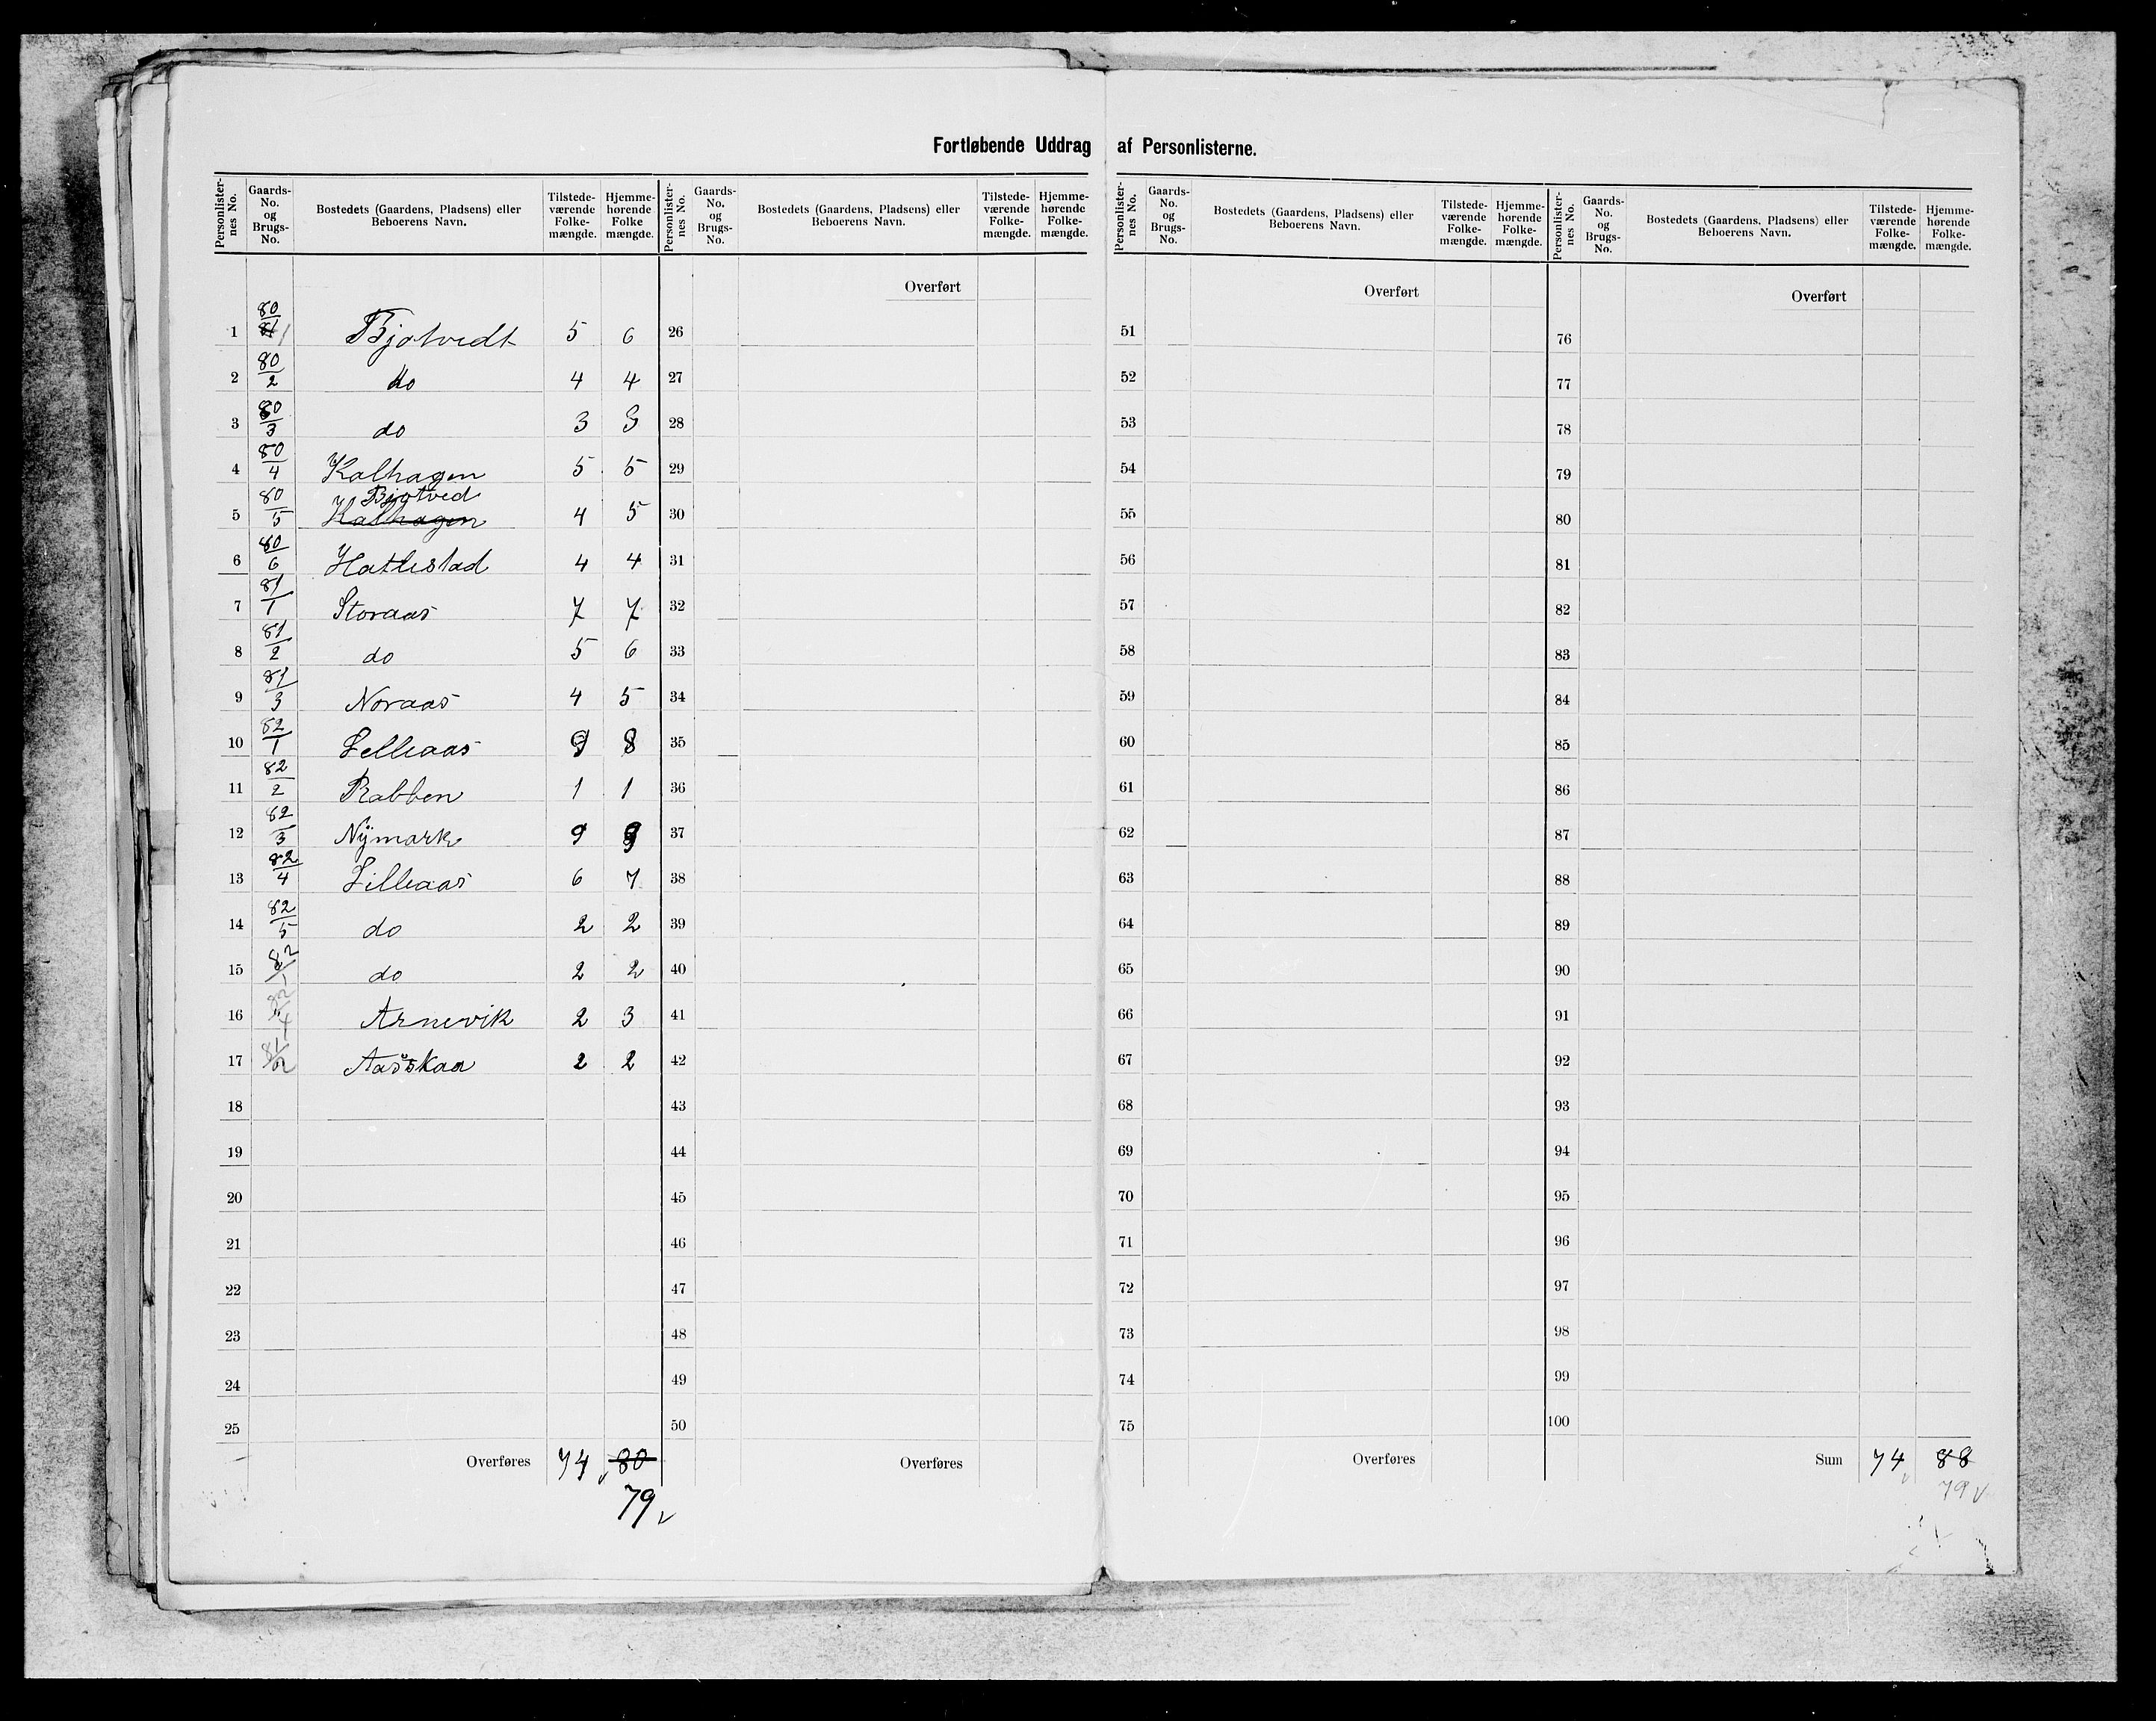 Fortløbende Uddrag af Personlisterne.
Personlisternes No. Gaards-No. og Brugs-No. Bostedets (Gaardens, Pladsens) eller Beboerens Navn. Tilstedeværende Folkemængde. Hjemmehørende Folkemængde.
Personlisternes No. Gaards-No. og Brugs-No. Bostedets (Gaardens, Pladsens) eller Beboerens Navn. Tilstedeværende Folkemængde. Hjemmehørende Folkemængde.
Personlisternes No. Gaards-No. og Brugs-No. Bostedets (Gaardens, Pladsens) eller Beboerens Navn. Tilstedeværende Folkemængde. Hjemmehørende Folkemængde.
Personlisternes No. Gaards-No. og Brugs-No. Bostedets (Gaardens, Pladsens) eller Beboerens Navn. Tilstedeværende Folkemængde. Hjemmehørende Folkemængde.
Overført Overført Overført
1 80/1 Bjotvedt 5 6 26 51 76
2 80/2 do 4 4 27 52 77
3 80/3 do 3 3 28 53 78
4 80/4 Kalhagen 5 5 29 54 79
Bjotved
5 80/5 Kalhagen 4 5 30 55 80
6 80/6 Hatlestad 4 4 31 56 81
7 81/1 Storaas 7 7 32 57 82
8 81/2 do 5 6 33 58 83
9 81/3 Noraas 4 5 34 59 84
10 82/1 Lelleaas 9 8 35 60 85
11 82/2 Rabben 1 1 36 61 86
12 82/3 Nÿmark 9 37 62 87
13 82/4 Lilleaas 6 7 38 63 88
14 82/5 do 2 2 39 64 89
15 82/1 do 2 2 40 65 90
16 Arnevik 2 3 41 66 91
17 81/2 Aasskaa 2 2 42 67 92
18 43 68 93
19 44 69 94
20 45 70 95
21 46 71 96
22 47 72 97
23 48 73 98
24 49 74 99
25 50 75 100
Overføres 74 80 Overføres Overføres Sum 74 88
79 79